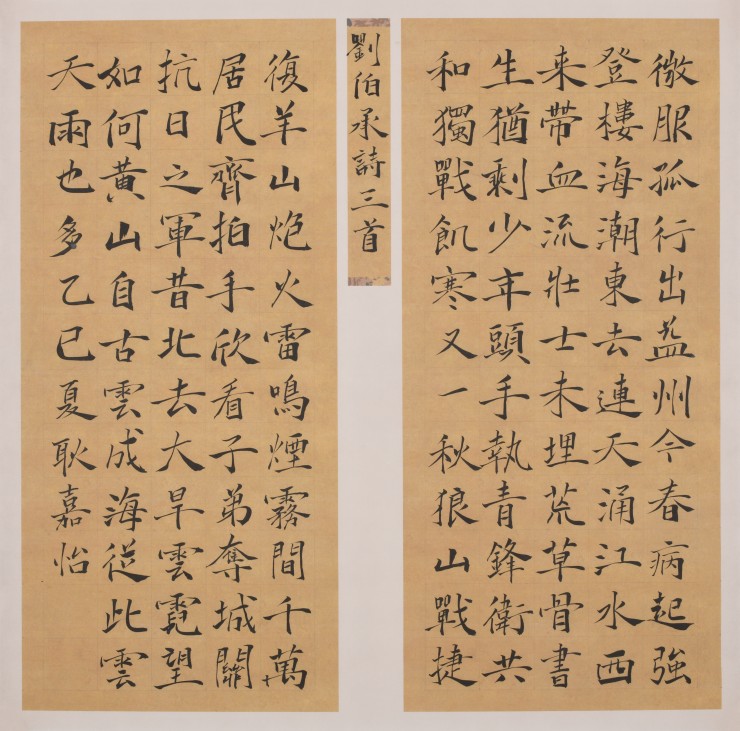 微服孤行出益州今春病起強
登樓海潮東去連天涌江水西
来帶血流壯士未埋荒草骨書
生猶剩少年頭手執青鋒衛共
和獨戰飢寒又一秋狼山戰捷
劉伯承詩三首
復羊山炮火雷鳴煙霧間千萬
居民齊拍手欣看子弟奪城關
抗日之軍昔北去大旱雲霓望
如何黃山自古雲成海從此雲
天雨也多乙巳夏耿嘉怡